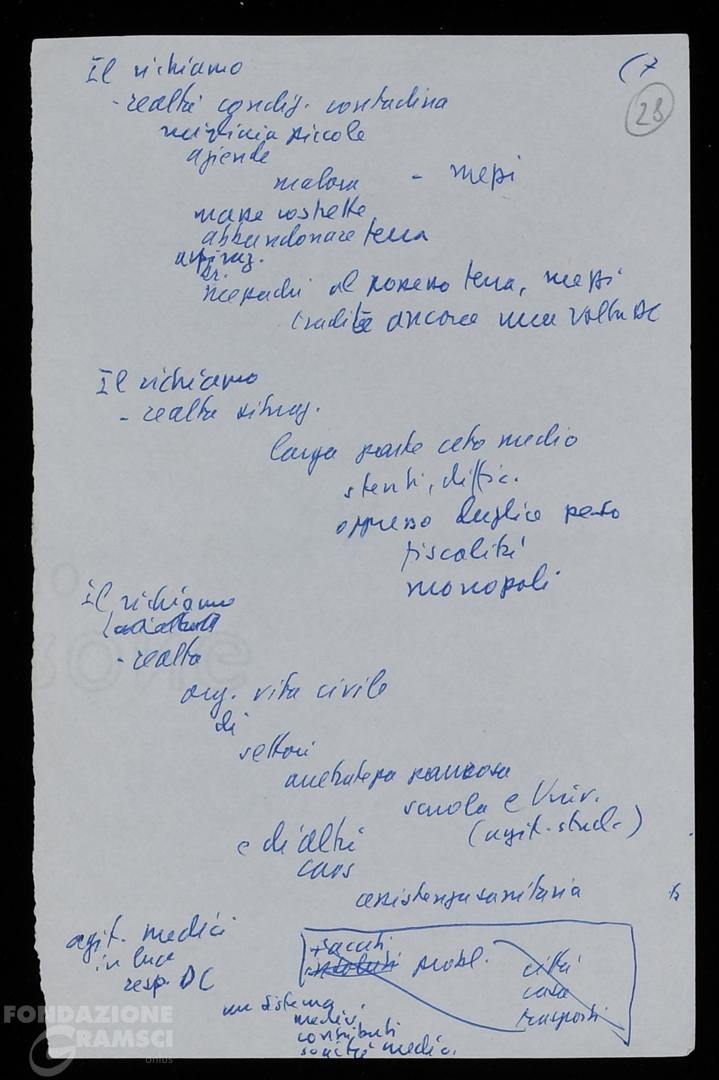 Il richiamo
(7
28
- realtà condiz. contadina
piccole
aziende
malora - mezzi
masse costrette
abbandonare terra
aspiraz.
mezzadri al possesso terra, mezzi
tradite ancora una volta DC
Il richiamo
- realtà situaz.
larga parte ceto medio
stenti, diffic.
oppresso duplice peso
fiscalità
monopoli
Il richiamo
- realtà
org. vita civile
di
settori
arretratezza paurosa
scuola e Univ.
(agit. stud.)
e di altri
caos
assistenza sanitaria
agit. medici
in luce
resp. DC
probl.
città
casa
trasporti
un sistema
medici
contributi
medic.
FONDAZIONE
GRAMSCI
onlus